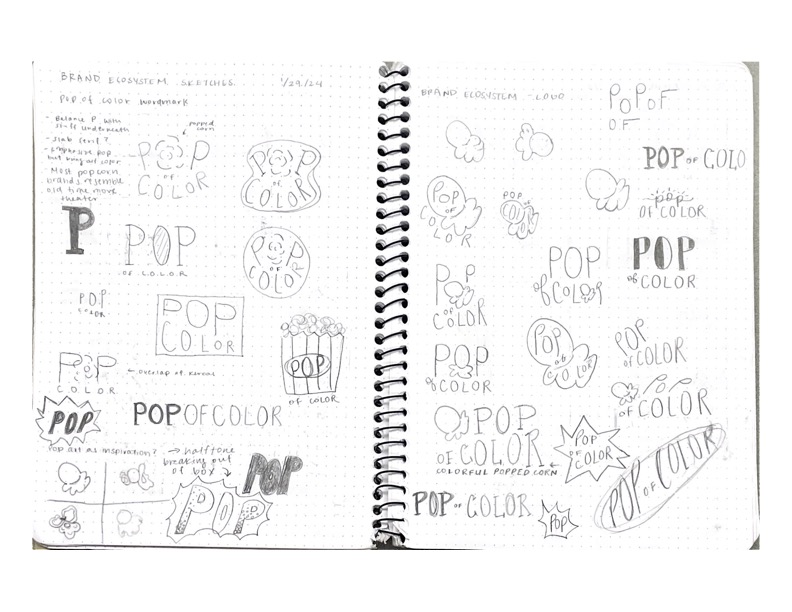 BRAND ECOSYSTEM SKETCHES 1/29/24
Pop of color wordmark
- Balance P with
stuff underneath
popped
corn
- slab serif?
- Emphasize pop
Most popcorn
brands resemble
old time movie
theater
POP
OF
COLOR
POP
OF
COLOR
P
POP
OF COLOR
POP
OF
COLOR
POP
COLOR
POP
COLOR
POP
OF COLOR
POP
COLOR
← overlap of kernel
POP
POP OF COLOR
Pop art as inspiration?
→ halftone
breaking out
of box
POP
POP
BRAND ECOSYSTEM - LOGO
POPOF
OF
POP OF COLO
POP
OF
COLOR
POP
OF
COLOR
POP
OF COLOR
POP
OF
COLOR
POP
of COLOR
POP
of COLOR
POP
of COLOR
POP
of
COLOR
POP
of COLOR
POP
of COLOR
POP
OF COLOR
COLORFUL POPPED CORN
POP
OF
COLOR
POP OF COLOR
POP OF COLOR
POP